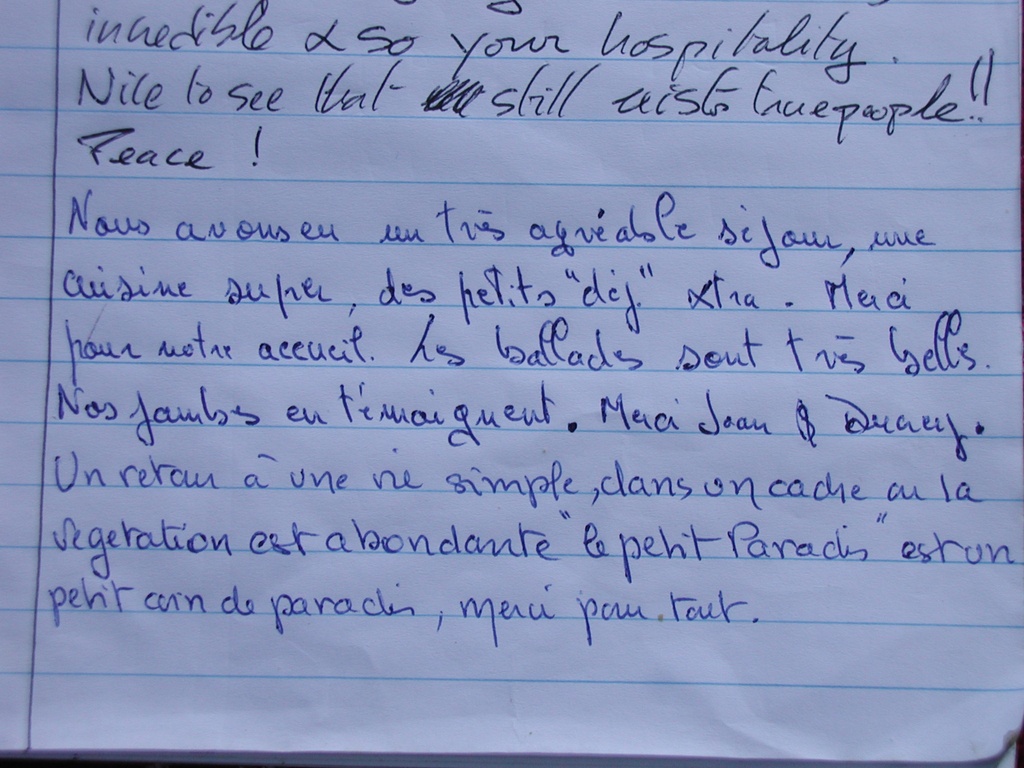 incredible & so your hospitality.
Nice to see that still exists true people!!
Peace !
Nous avons eu un très agréable séjour, une
cuisine super, des petits "déj" xtra. Merci
pour notre accueil. Les ballades sont très belles.
Nos jambes en témoignent. Merci Joan &
Un retour à une vie simple, dans un cadre ou la
végétation est abondante "le petit Paradis" est un
petit coin de paradis, merci pour tout.